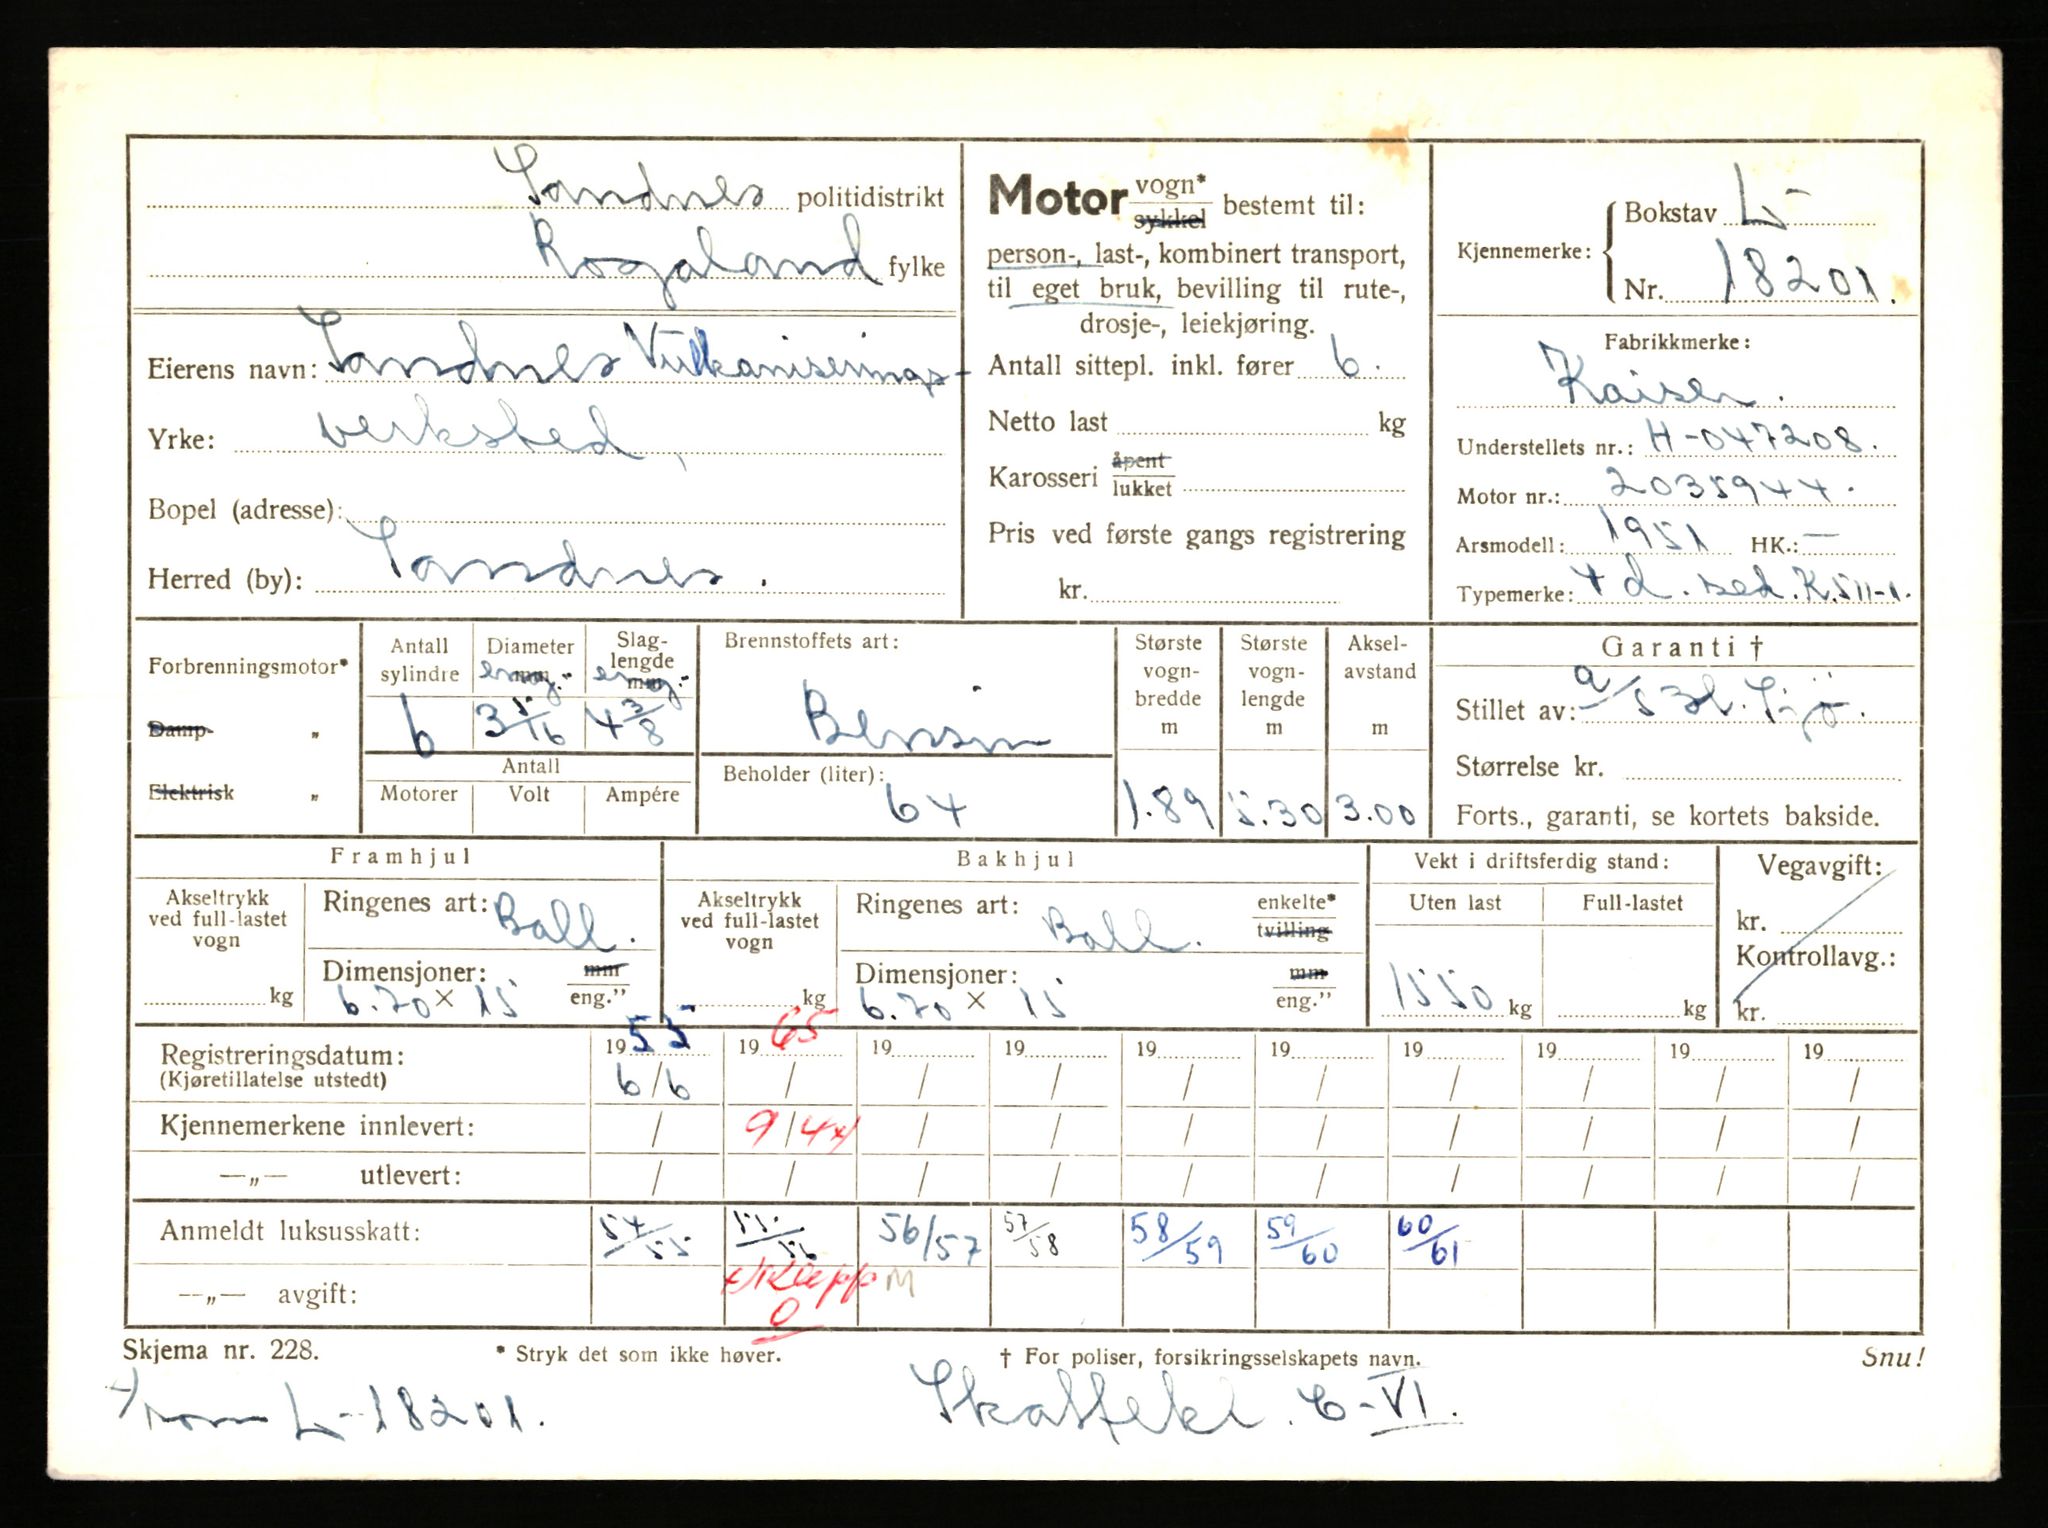 Sandnes politidistrikt
Rogaland fylke
Eierens navn: Sandnes Vulkaniserings-
Yrke: verksted,
Bopel (adresse):
Herred (by): Sandnes.
Motor vogn* sykkel bestemt til:
person-, last-, kombinert transport,
til eget bruk, bevilling til rute-,
drosje-, leiekjøring.
Antall sittepl. inkl. fører 6.
Netto last kg
Karosseri åpent lukket
Pris ved første gangs registrering
kr.
Kjennemerke: Bokstav L-
Nr. 18201.
Fabrikkmerke:
Kaiser.
Understellets nr.: H-047208.
Motor nr.: 2035944.
Arsmodell: 1951 HK.: —
Typemerke: 4 d. sed. K.511-1.
Forbrenningsmotor*
Damp- „
Elektrisk „
Antall sylindre
6
Diameter mm eng."
3 5/16
Slaglengde mm eng."
4 3/8
Antall
Motorer Volt Ampére
Brennstoffets art:
Bensin
Beholder (liter):
64
Største vogn-bredde m
1.89
Største vogn-lengde m
5.30
Aksel-avstand m
3.00
Garanti †
Stillet av: a/s
Størrelse kr.
Forts., garanti, se kortets bakside.
Framhjul
Akseltrykk ved full-lastet vogn
kg
Ringenes art: Ball.
Dimensjoner: mm eng."
6.70 x 15
Bakhjul
Akseltrykk ved full-lastet vogn
kg
Ringenes art: Ball. enkelte* tvilling
Dimensjoner: mm eng."
6.70 x 15
Vekt i driftsferdig stand:
Uten last Full-lastet
1550 kg kg
Vegavgift:
kr.
Kontrollavg.:
kr.
Registreringsdatum: 1955 1965 19 19 19 19 19 19 19 19
(Kjøretillatelse utstedt) 6/6 / / / / / / / / /
Kjennemerkene innlevert: / 9/4 x) / / / / / / / /
—„— utlevert: / / / / / / / / / /
Anmeldt luksusskatt: 54/55 55/56 56/57 57/58 58/59 59/60 60/61
—„— avgift: x) Klepp M
0
Skjema nr. 228. * Stryk det som ikke høver. † For poliser, forsikringsselskapets navn. Snu!
L-18201. Skattekl. C-VI.